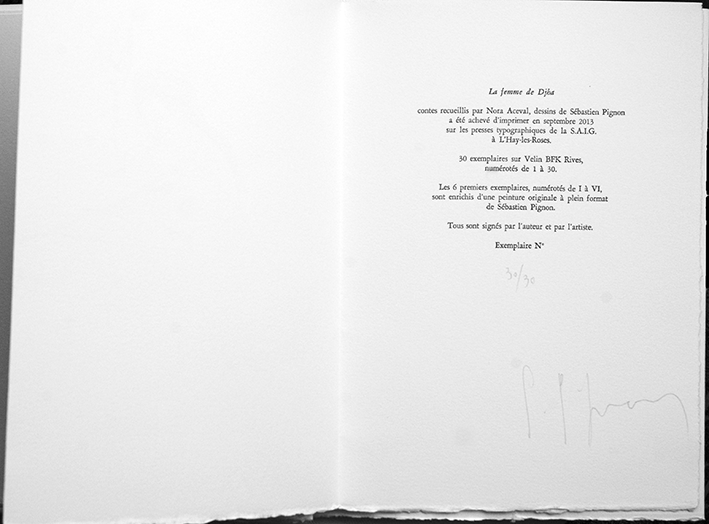 La femme de Djha
contes recueillis par Nora Aceval, dessins de Sébastien Pignon
a été achevé d'imprimer en septembre 2013
sur les presses typographiques de la S.A.I.G.
à L'Hay-les-Roses.
30 exemplaires sur Velin BFK Rives,
numérotés de 1 à 30.
Les 6 premiers exemplaires, numérotés de I à VI,
sont enrichis d'une peinture originale à plein format
de Sébastien Pignon.
Tous sont signés par l'auteur et par l'artiste.
Exemplaire N°
30/30
S. Pignon